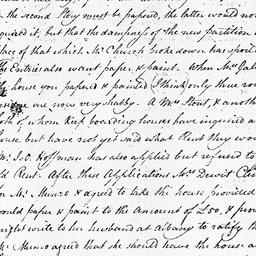 the second Story must be papered, the latter would not
quired it, but that the dampness of the new partition
place of that which Mr. Church took down has spoil
The Entries also want paper & paint. When Mr. Gal
house you papered & painted I think only three roo
are now very shabby. A Mrs. Stout, & anoth
both of whom keep boarding houses have inquired a
house but have not yet said what Rent they wou
Mr. J. C. Hoffman has also applied but refused to
old Rent. After these Applications Mrs. Dewit Clin
for Mr. Munro & agreed to take the house provided
would paper & paint to the amount of £50, &
might write to her husband at Albany to ratify th
Mr. Munro agreed that she should have the house a